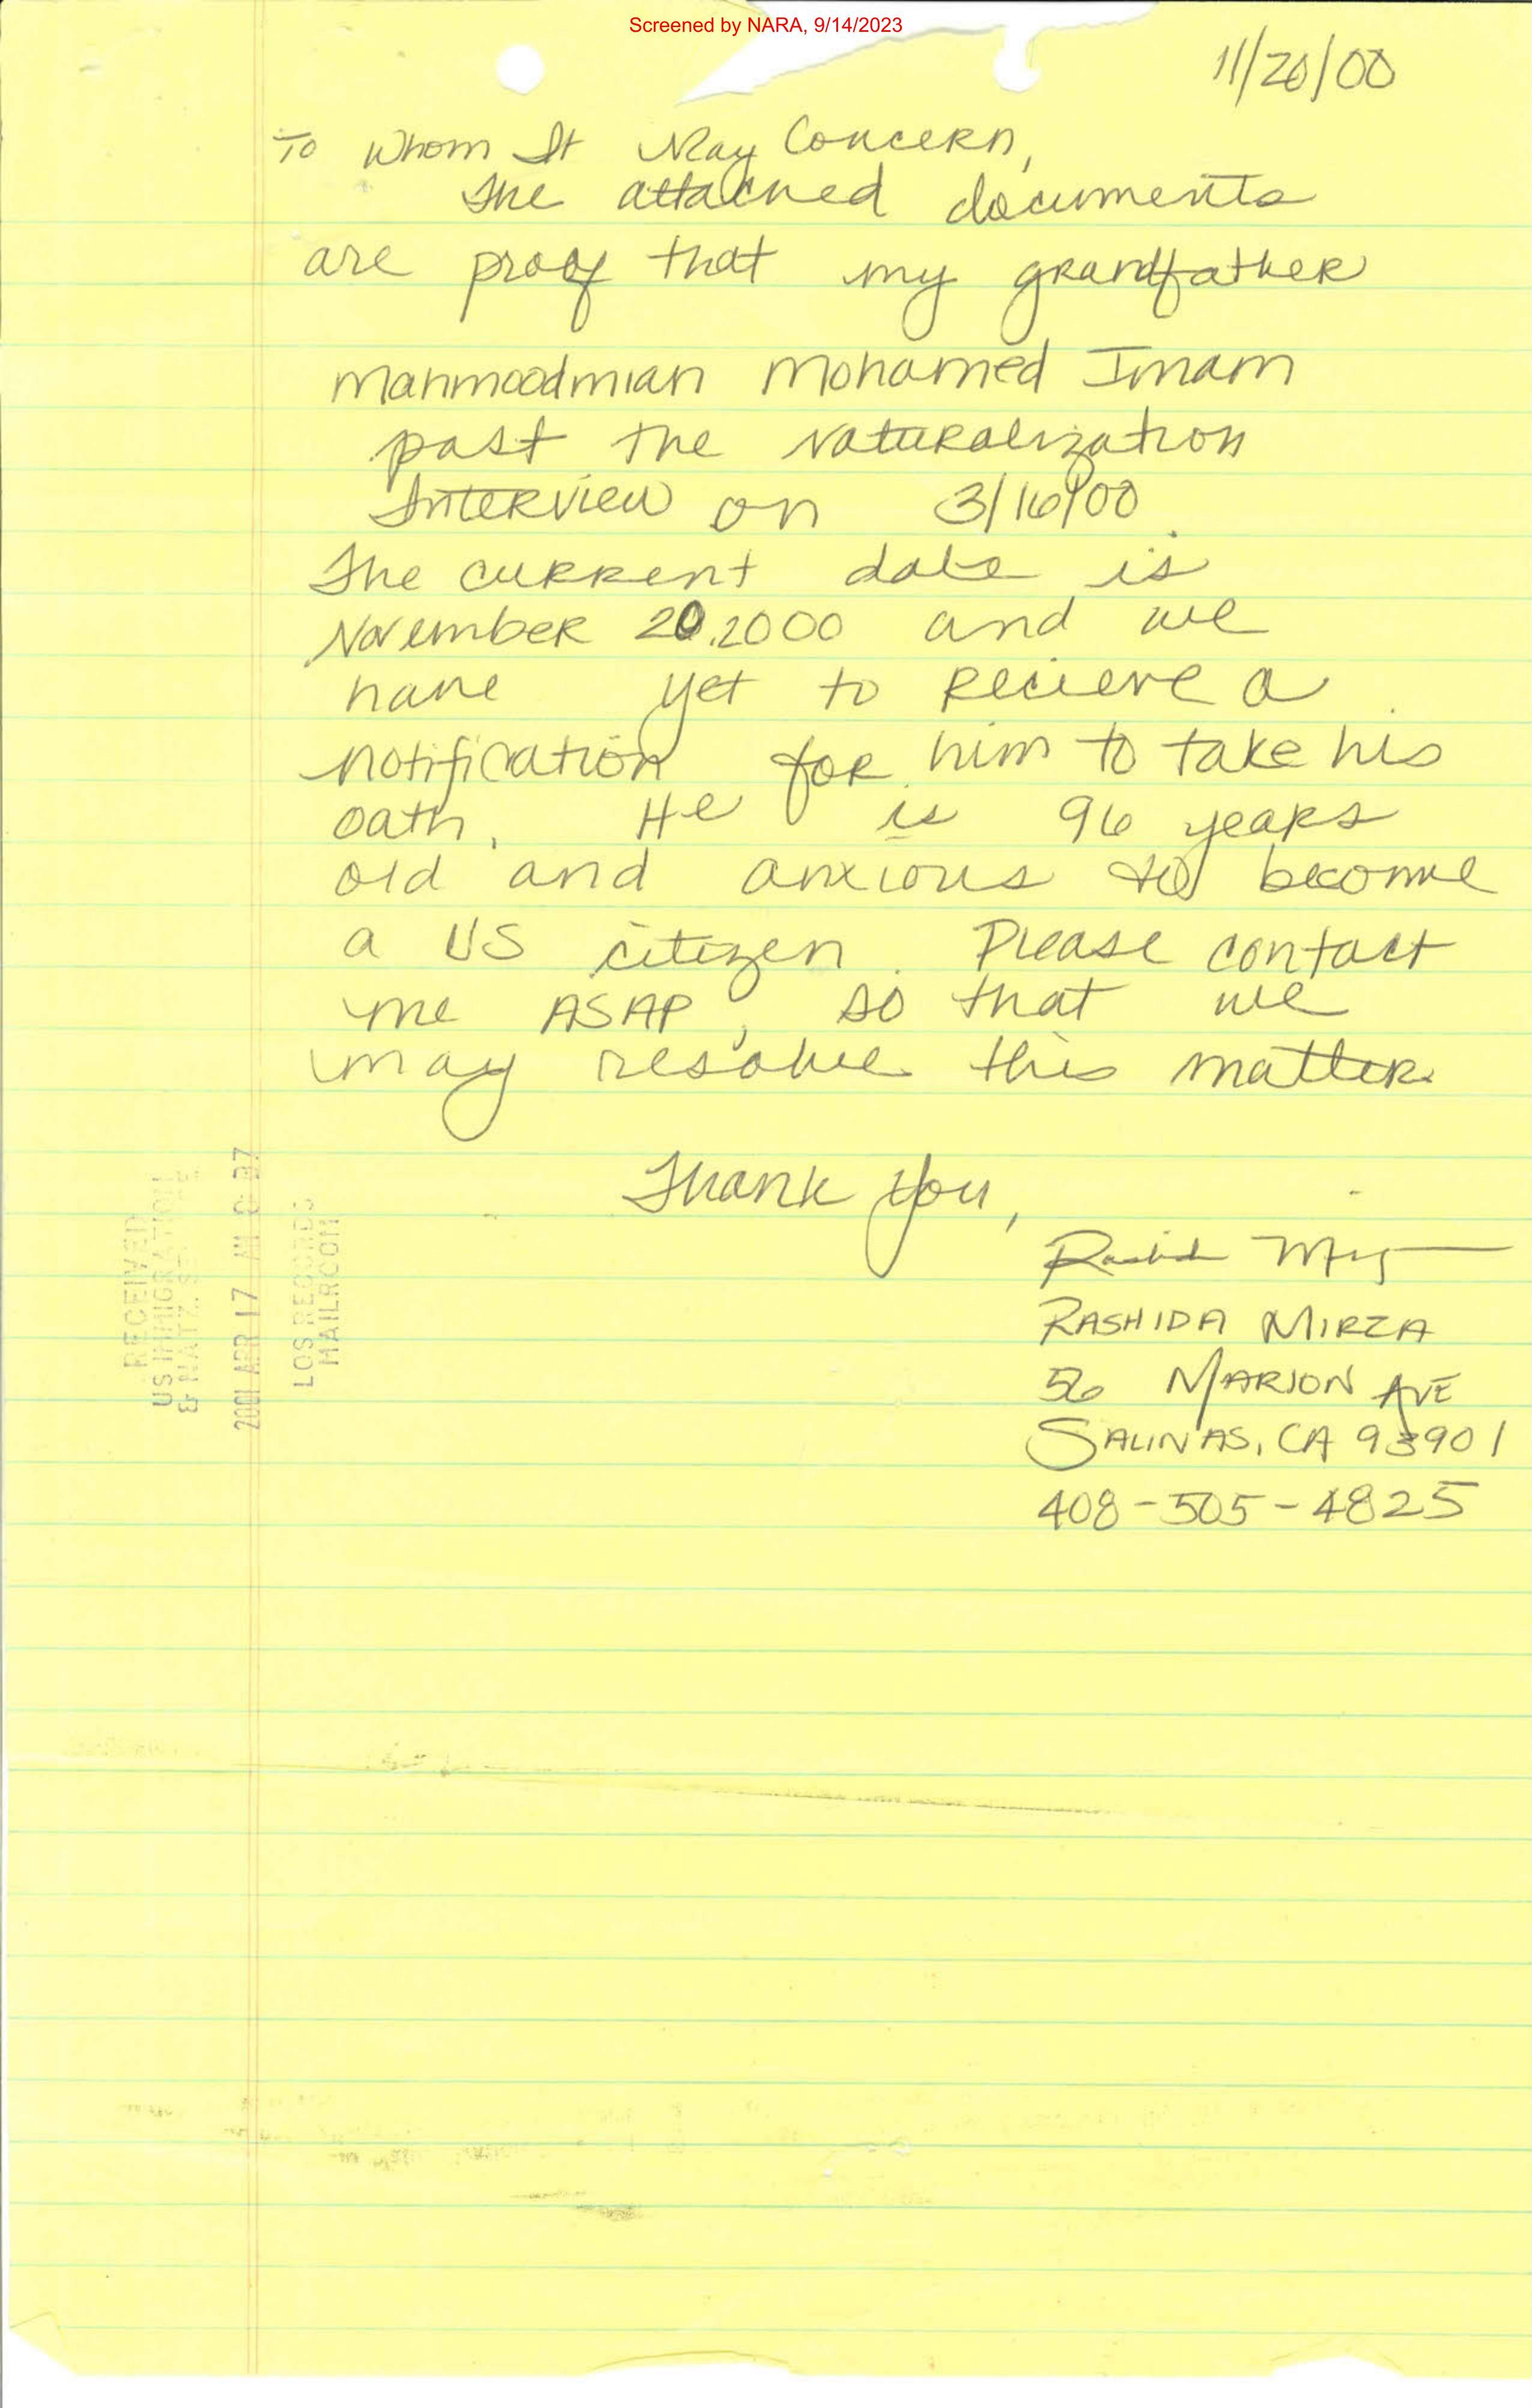 Screened by NARA, 9/14/2023
11/20/00
To Whom It May Concern,
The attached documents
are proof that my grandfather
Mahmoodmian Mohamed Imam
past the Naturalization
Interview on 3/16/00.
The current date is
November 20, 2000 and we
have yet to recieve a
notification for him to take his
oath. He is 96 years
old and anxious to become
a US citizen. Please contact
me ASAP, so that we
may resolve this matter.
Thank you,
RASHIDA MIRZA
56 MARION AVE
SALINAS, CA 93901
408-505-4825
RECEIVED
US IMMIGRATION
& NATZ.
2001 APR 17
LOS RECORDS
MAILROOM